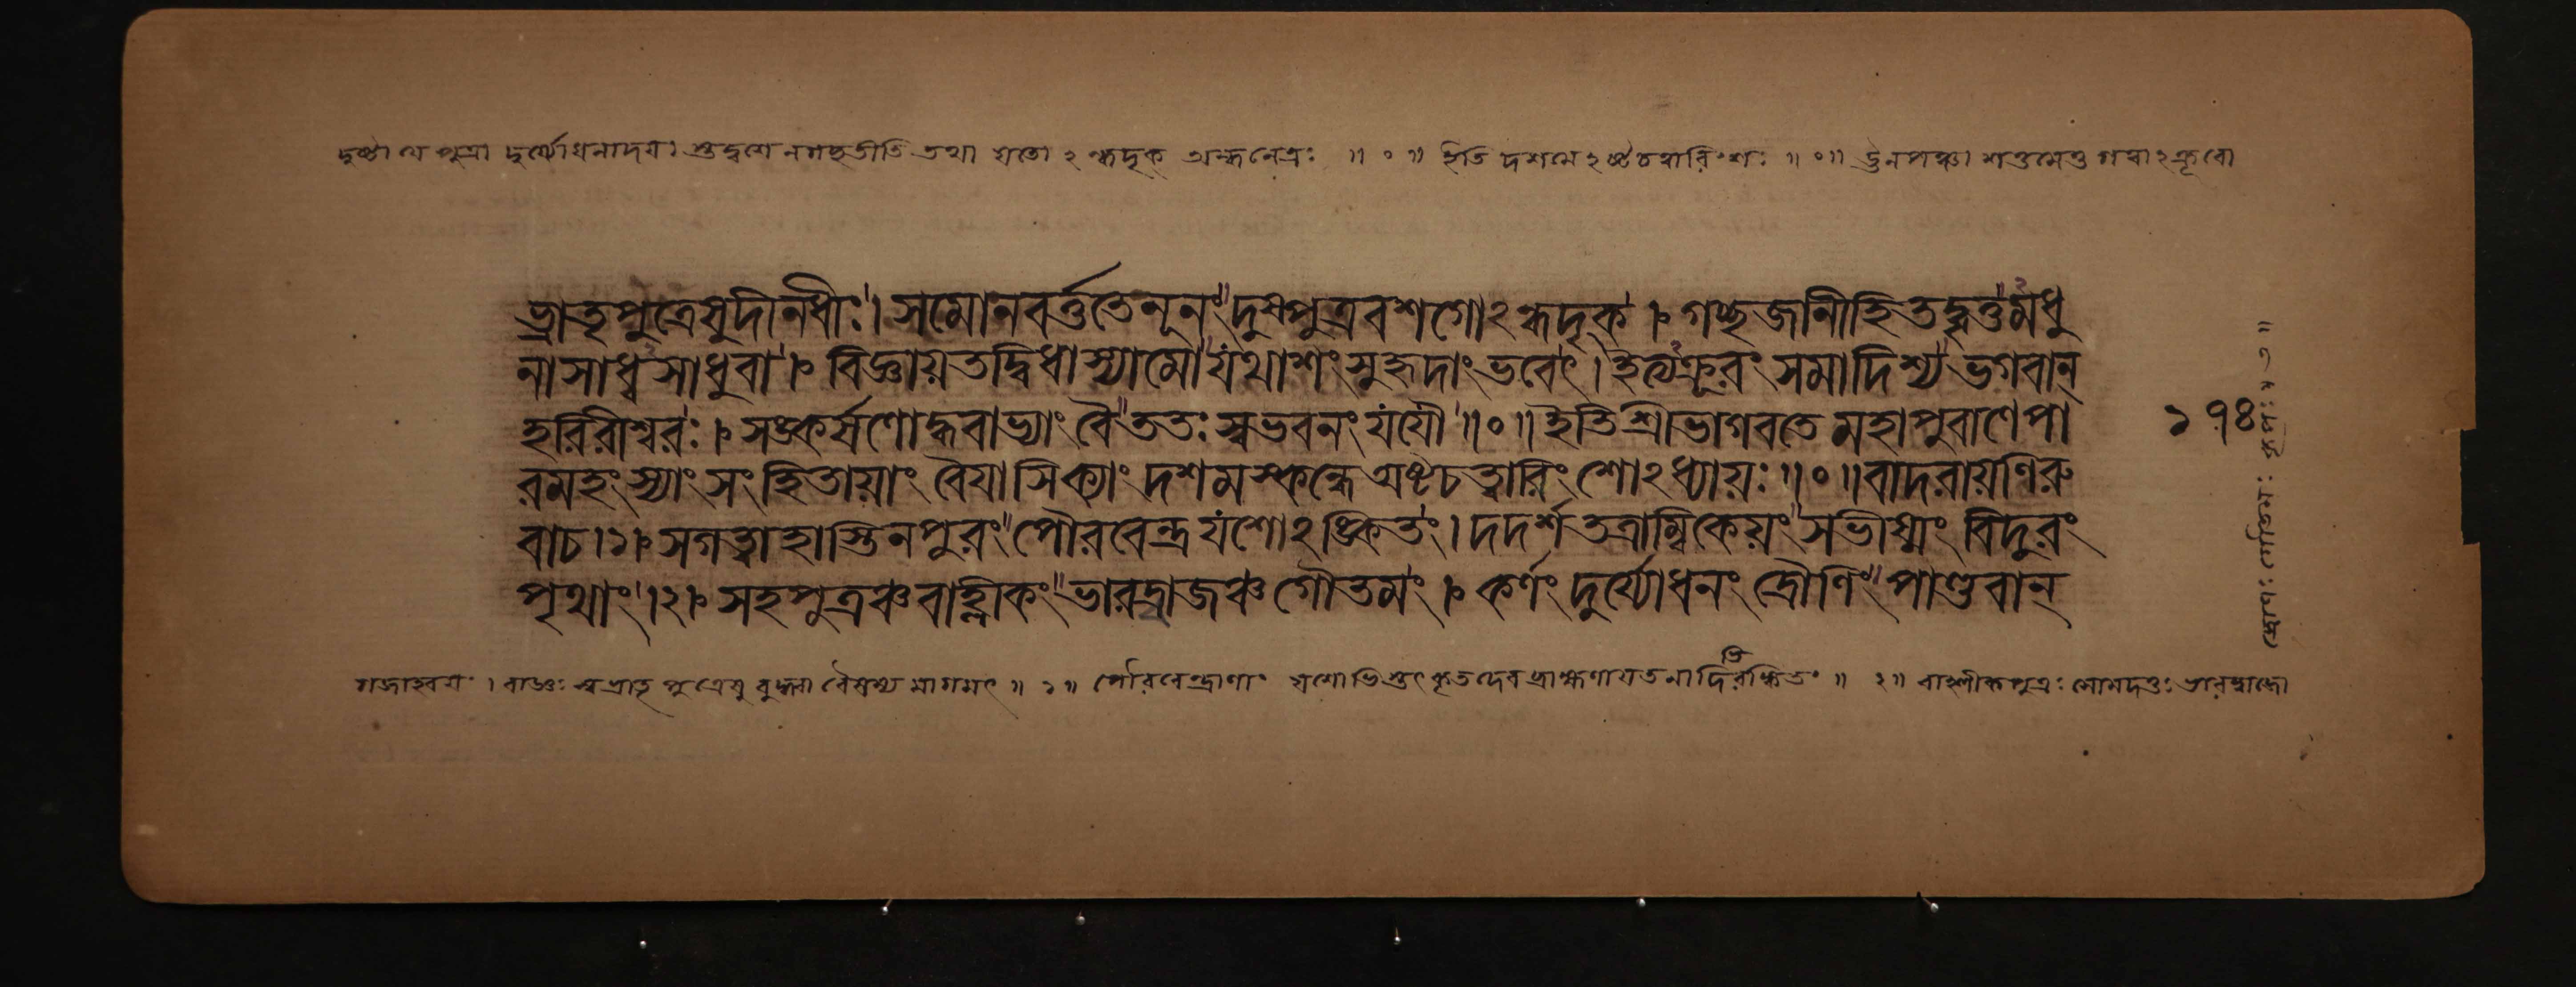 দুষ্টা যে পুত্রা দুর্য্যোধনাদয়। তদ্বশে নগচ্ছতীতি তথা যতো ২ন্ধদৃক্ অন্ধনেত্রঃ ॥ ০ ॥ ইতি দশমে ২ষ্টচত্বারিংশঃ ॥ ০ ॥ ঊনপঞ্চাশত্তমেতু গত্বা ২ক্রূরো
ভ্রাতৃপুত্রেষুদীনধীঃ। সমোনবর্ত্ততেনূনংদুষ্টপুত্রবশগো২ন্ধদৃক্। গচ্ছজানীহিতদ্বৃত্তমধু
নাসাধ্বসাধুবা। বিজ্ঞায়তদ্বিধাস্যামোযথাশংসুহৃদাংভবেৎ। ইত্যক্রূরং সমাদিশ্য ভগবান্
হরিরীশ্বরঃ। সঙ্কর্ষণোদ্ধবাভ্যাং বৈততঃ স্বভবনংযযৌ ॥০॥ ইতিশ্রীভাগবতে মহাপুরাণেপা
রমহংস্যাং সংহিতায়াং বৈয়াসিক্যাং দশমস্কন্ধে অষ্টচত্বারিংশো২ধ্যায়ঃ ॥০॥ বাদরায়ণিরু
বাচ।১। সগত্বাহাস্তিনপুরং পৌরবেন্দ্রযশো২ঙ্কিতং। দদর্শতত্রাম্বিকেয়ং সভীষ্মং বিদুরং
পৃথাং।২। সহপুত্রঞ্চবাহ্লিকং ভারদ্বাজঞ্চগৌতমং। কর্ণং দুর্য্যোধনং দ্রৌণিং পাণ্ডবান্
গজাহ্বয়ং। রাজ্ঞঃ স্বভ্রাতৃপুত্রেষু বুদ্ধ্বা বৈষম্যমাগমৎ ॥ ১ ॥ পৌরবেন্দ্রাণাং যশোভিস্তৎকৃতদেবব্রাহ্মণায়তনাদিভিরঙ্কিতং ॥ ২ ॥ বাহ্লীকপুত্রঃ সোমদত্তঃ ভারদ্বাজো
১৭৪